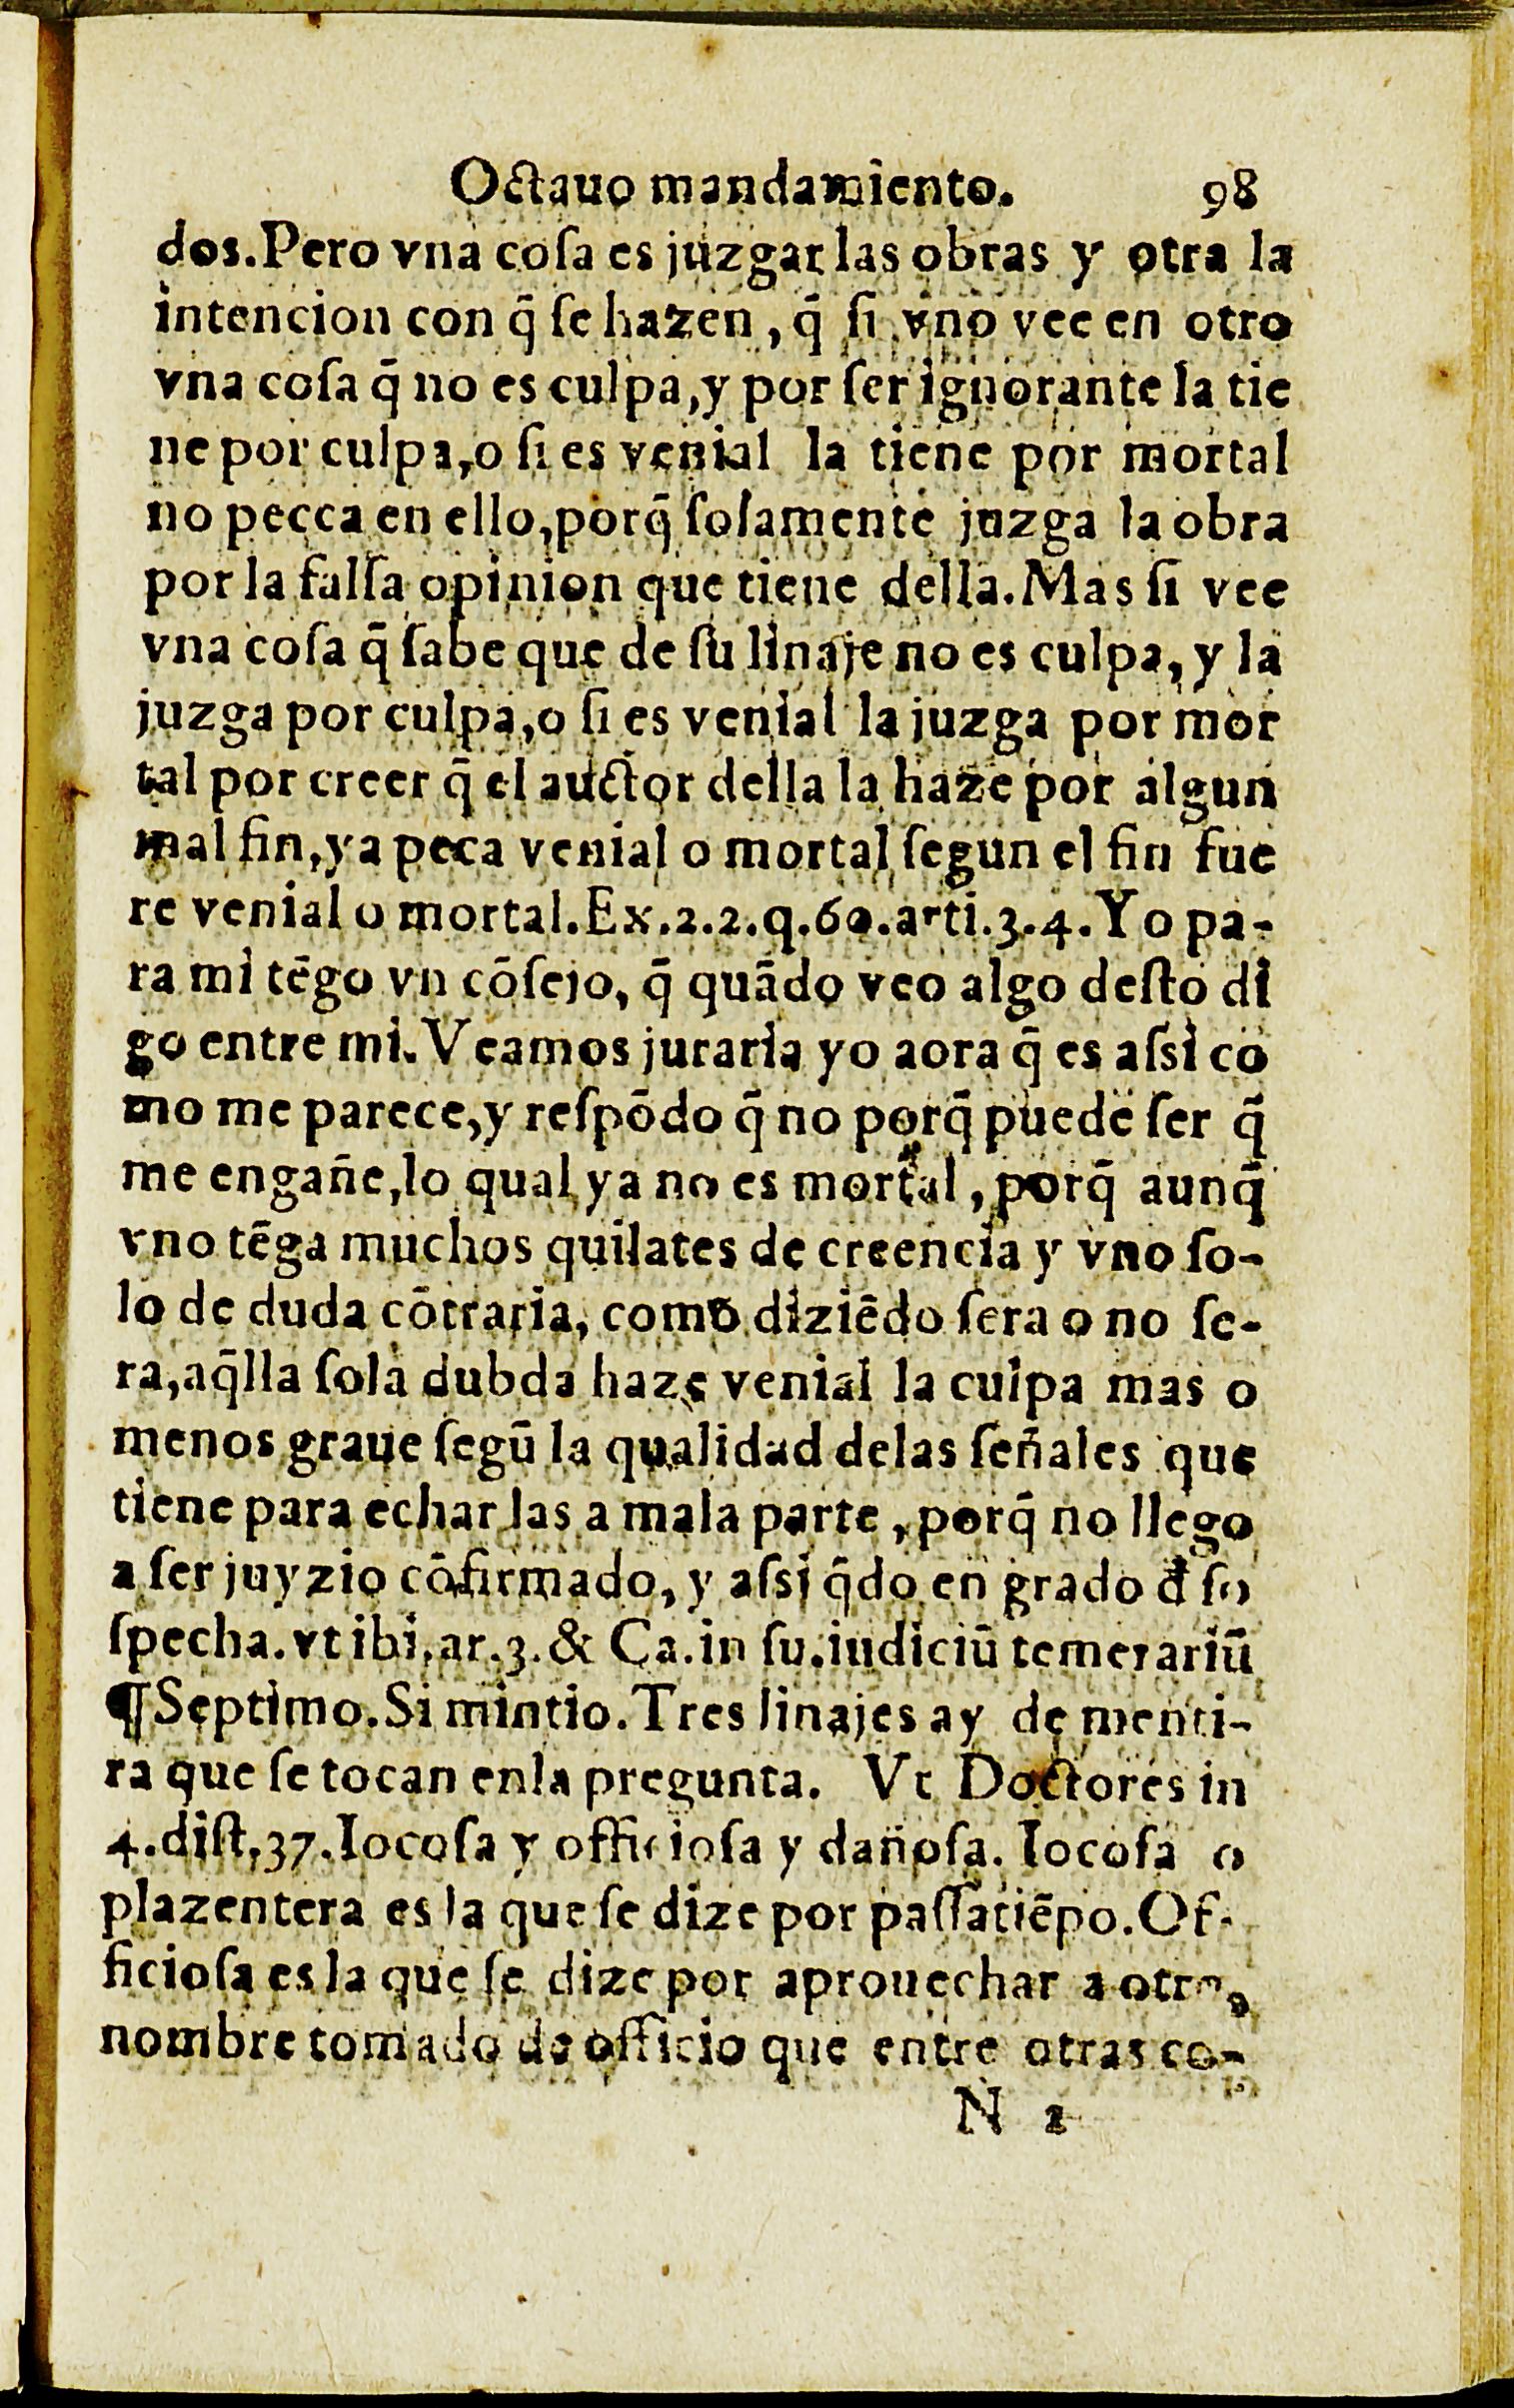 Octauo mandamiento. 98
dos.Pero vna coſa es juzgar las obras y otra la
intencion con q̄ ſe hazen, q̄ ſi vno vee en otro
vna coſa q̄ no es culpa,y por ſer ignorante la tie
ne por culpa,o ſi es venial la tiene por mortal
no pecca en ello,porq̄ ſolamente juzga la obra
por la falſa opinion que tiene della.Mas ſi vee
vna coſa q̄ ſabe que de ſu linaje no es culpa, y la
juzga por culpa,o ſi es venial la juzga por mor
tal por creer q̄ el auctor della la haze por algun
mal fin,ya peca venial o mortal ſegun el fin fue
re venial o mortal.Ex.2.2.q.60.arti.3.4.Yo pa-
ra mi tēgo vn cōſejo, q̄ quādo veo algo deſto di
go entre mi. Veamos juraria yo aora q̄ es aſsi co
mo me parece,y reſpōdo q̄ no porq̄ puede ſer q̄
me engañe,lo qual ya no es mortal, porq̄ aunq̄
vno tēga muchos quilates de creencia y vno ſo-
lo de duda cōtraria, como diziēdo ſera o no ſe-
ra,aq̄lla ſola dubda haze venial la culpa mas o
menos graue ſegū la qualidad delas ſeñales que
tiene para echar las a mala parte, porq̄ no llego
a ſer juyzio cōfirmado, y aſsi q̄do en grado đ ſo
ſpecha.vt ibi.ar.3.& Ca.in ſu.iudiciū temerariū
¶Septimo.Si mintio.Tres linajes ay de menti-
ra que ſe tocan enla pregunta. Vt Doctores in
4.diſt.37.Iocoſa y officioſa y dañoſa. Iocoſa o
plazentera es la que ſe dize por paſſatiēpo.Of-
ficioſa es la que ſe dize por aprouechar a otro,
nombre tomado de officio que entre otras co-
N 2